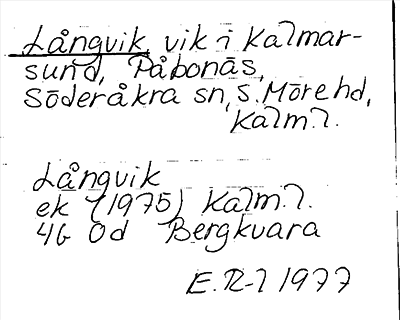 Långvik, vik i Kalmar-
sund, Påbonäs,
Söderåkra sn, S. Möre hd,
Kalm. l.
Långvik
ek (1975) Kalm. l.
4G 0d Bergkvara
E. R-l 1977